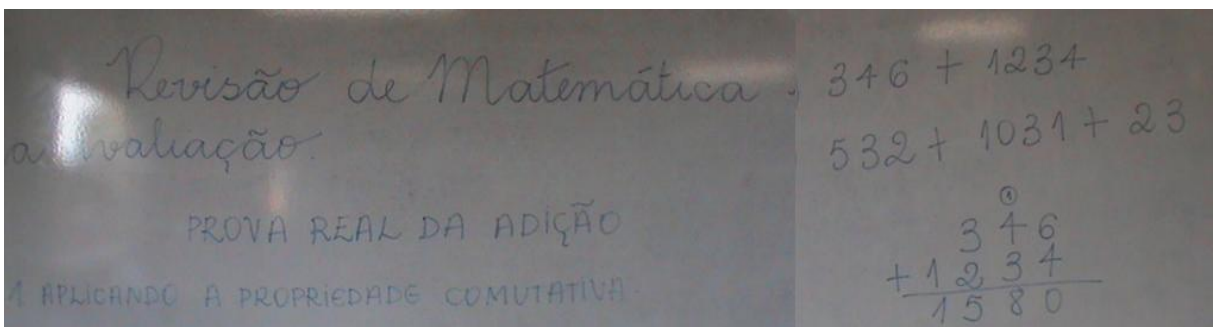 Revisão de Matemática.
a Avaliação.
PROVA REAL DA ADIÇÃO
1 APLICANDO A PROPRIEDADE COMUTATIVA.
346 + 1234
532 + 1031 + 23
1
346
+ 1234
1580